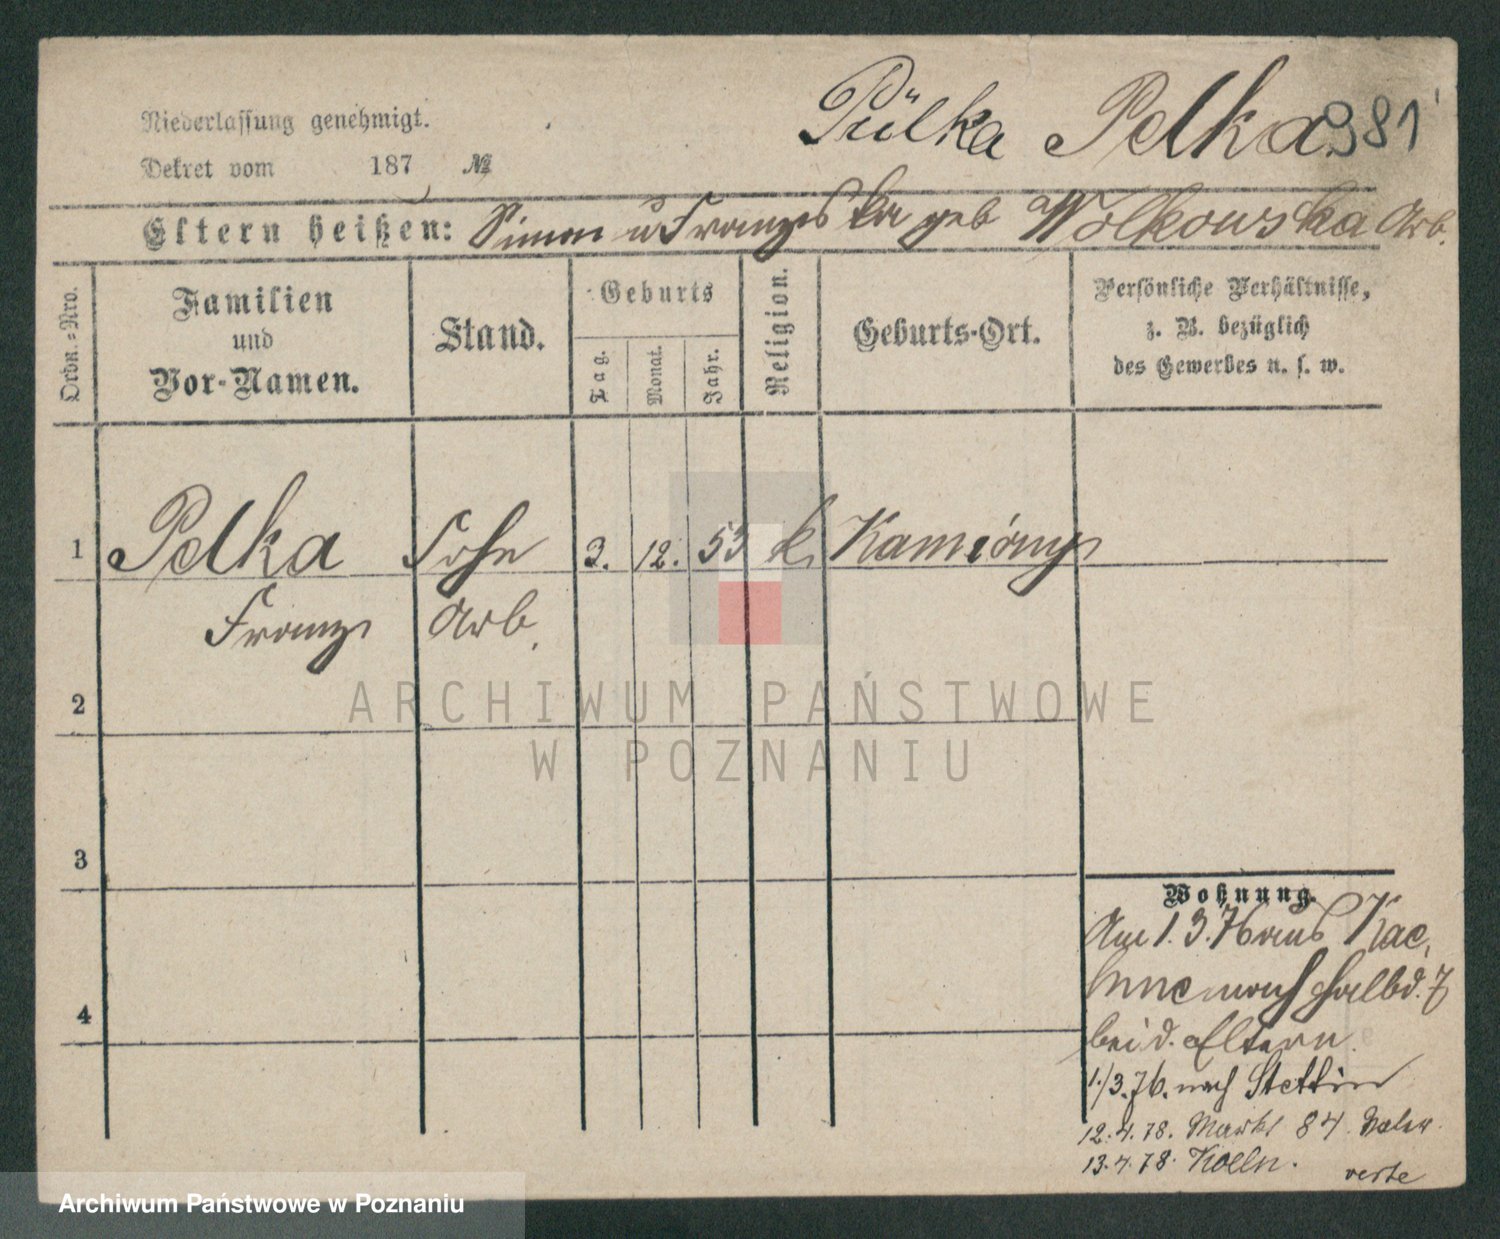 Pülka Pelka 381
Niederlassung genehmigt.
Dekret vom 187 №
Eltern heißen: Simon u Franziska geb Wolkowska Arb.
Ordn.=Nro.
Familien
und
Vor-Namen.
Stand.
Geburts
Tag.
Monat.
Jahr.
Religion.
Geburts-Ort.
Persönliche Verhältnisse,
z. B. bezüglich
des Gewerbes u. s. w.
1 Pelka Sohn 3. 12. 53 k. Kamiony
Franz Arb.
2
3
4
Wohnung.
Am 1.3.76 aus
nach Halbd. 7
bei d. Eltern
1./3.76. nach Stettin
12.4.78. Markt 84
13.4.78. Kolln.
verte
ARCHIWUM PAŃSTWOWE
W POZNANIU
Archiwum Państwowe w Poznaniu